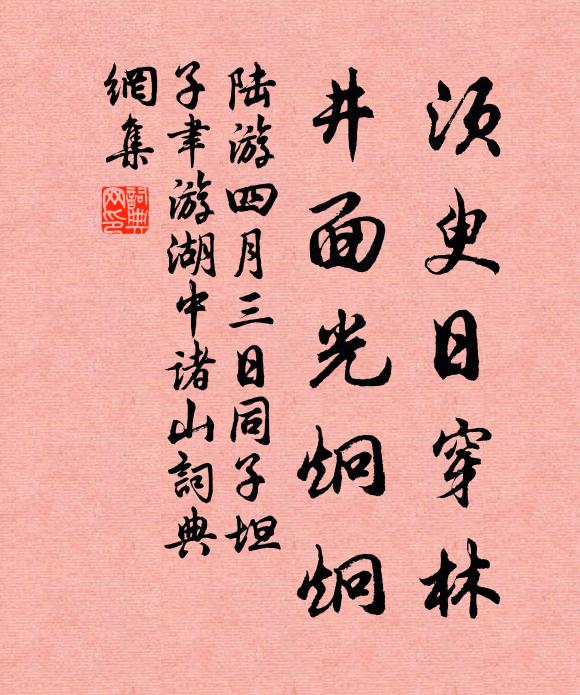 須臾日穿林
井面光炯炯
陆游四月三日同子坦
子聿游湖中诸山詞典
網集
詞典網印